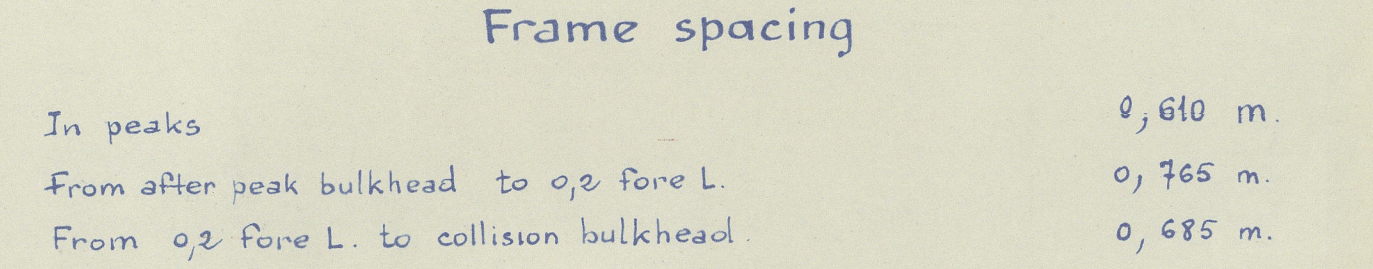 Frame spacing
In peaks 0,610 m.
From after peak bulkhead to 0,2 fore L. 0,765 m.
From 0,2 fore L. to collision bulkhead. 0,685 m.